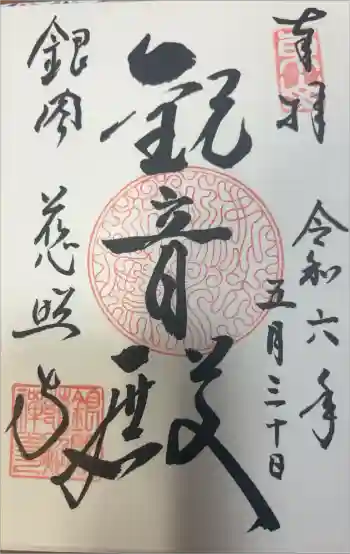 奉拝
令和六年
五月三十日
観音殿
銀閣 慈照寺